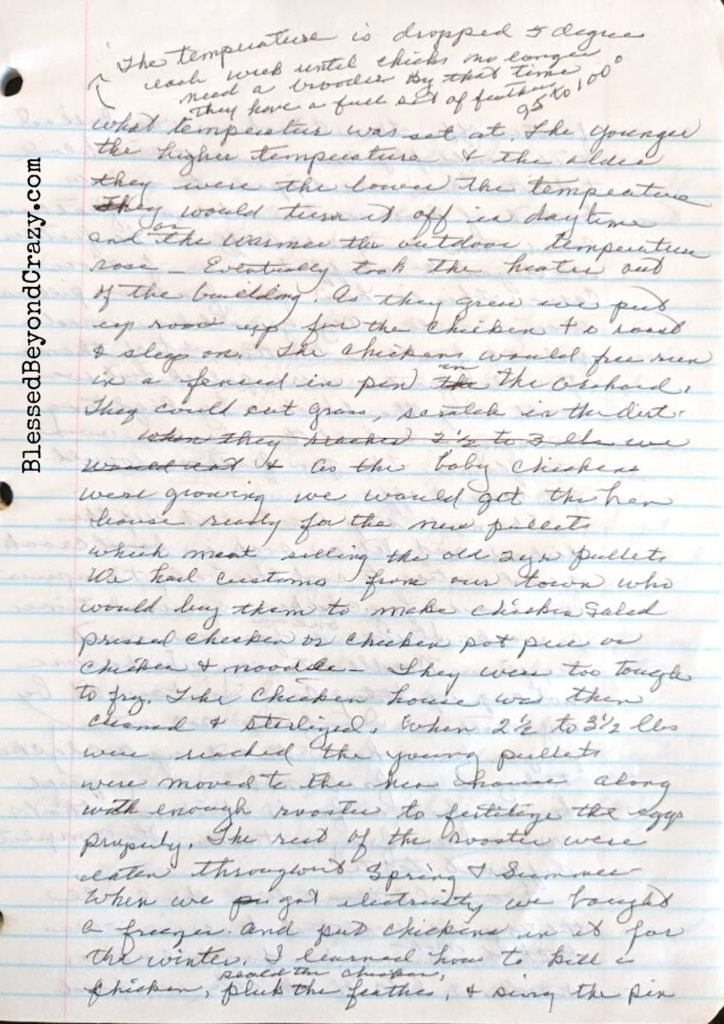 The temperature is dropped 5 degree
each week until chicks no longer
need a brooder By that time
They have a full set of feathers
95 to 100°
what temperatur was set at. The younger
the higher temperature & the older
they were the lower the temperature
They would turn it off in daytime
and or the warmer the outdoor temperature
rose - Eventually took the heater out
of the building. As they grew we put
up for the chicken to roost
& sleep on. The chickens would free run
in a fenced in pen in the The Orchard.
They could eat grass, scratch in the dirt.
When they reached 2½ to 3 lbs we
would eat & As the baby chickens
were growing we would get the hen
house ready for the new pullets
which meant selling the old 2 yr pullets
We had customs from our town who
would buy them to make chicken salad
pressed chicken or chicken pot pie or
chicken & noodle - They were too tough
to fry. The chicken house was then
cleaned & sterlized. When 2½ to 3½ lbs
were reached the young pullets
were moved to the hen house along
with enough rooster to fertilize the eggs
properly. The rest of the rooster were
eaten throughout Spring & Summer
When we got electricity we bought
a freezer and put chickens in it for
the winter. I learned how to kill a
scald the chicken,
chicken, pluk the feathes, & sing the pin
BlessedBeyondCrazy.com